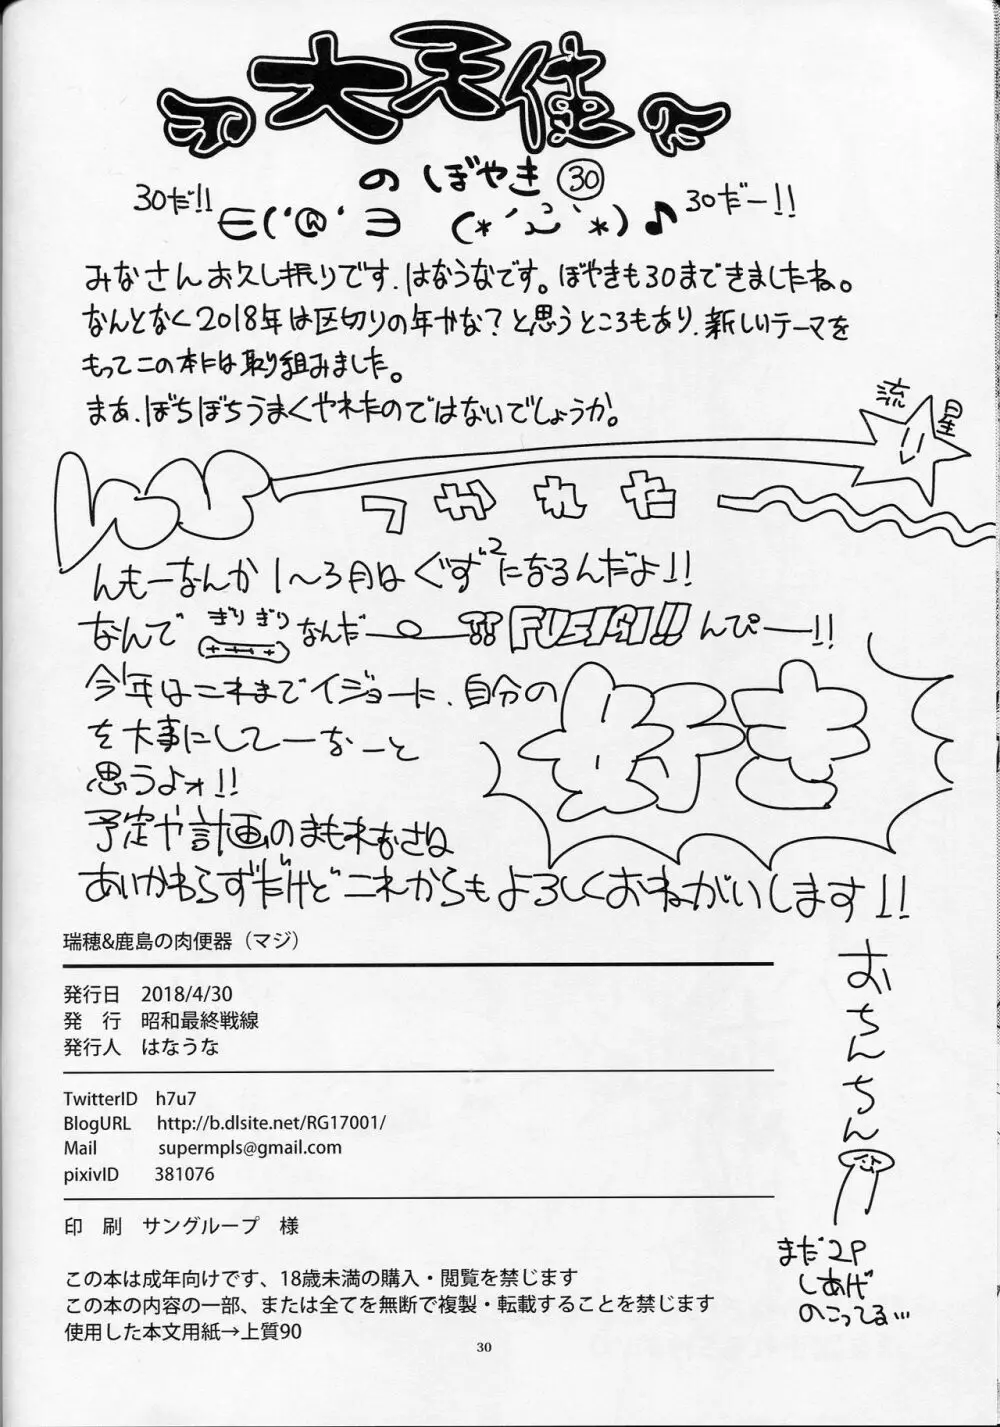 大天使
のぼやき㉚
30だ!! ∈('@'∋ (*´ω`*)♪ 30だー!!
みなさんお久し振りです.はなうなです。ぼやきも30まできましたね。
なんとなく2018年は区切りの年かな?と思うところもあり.新しいテーマを
もってこの本には取り組みました。
まあ.ぼちぼちうまくやれたのではないでしょうか。
流星
つかれた
んもーなんか1〜3月はぐず²になるんだよ!!
なんで ぎりぎり なんだー!! FUSIAI!! んぴー!!
今年はこれまでイジョーに.自分の
好き
を大事にしてーなーと
思うよォ!!
予定や計画のまもれなさね
あいかわらずだけどこれからもよろしくおねがいします!!
瑞穂&鹿島の肉便器(マジ)
発行日 2018/4/30
発 行 昭和最終戦線
発行人 はなうな
TwitterID h7u7
BlogURL http://b.dlsite.net/RG17001/
Mail supermpls@gmail.com
pixivID 381076
印 刷 サングループ 様
この本は成年向けです、18歳未満の購入・閲覧を禁じます
この本の内容の一部、または全てを無断で複製・転載することを禁じます
使用した本文用紙→上質90
おちんちん
まだ2P
しあげ
のこってる…
30